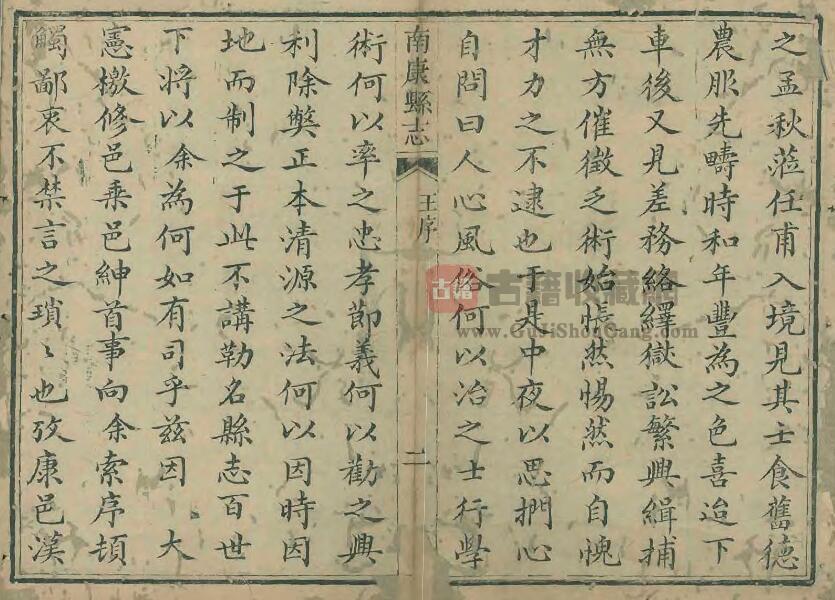 之孟秋蒞任甫入境見其士食舊德
農服先疇時和年豐為之色喜迨下
車後又見差務絡繹獄訟繁興緝捕
無方催徵乏術始悵然惕然而自愧
才力之不逮也于是中夜以思捫心
自問曰人心風俗何以治之士行學
南康縣志
王序
二
術何以率之忠孝節義何以勸之興
利除獘正本清源之法何以因時因
地而制之于此不講勒名縣志百世
下將以余為何如有司乎茲因 大
憲檄修邑乘邑紳首事向余索序頓
觸鄙衷不禁言之瑣〻也攷康邑漢
古籍
古籍收藏網
www.GuJiShouCang.com